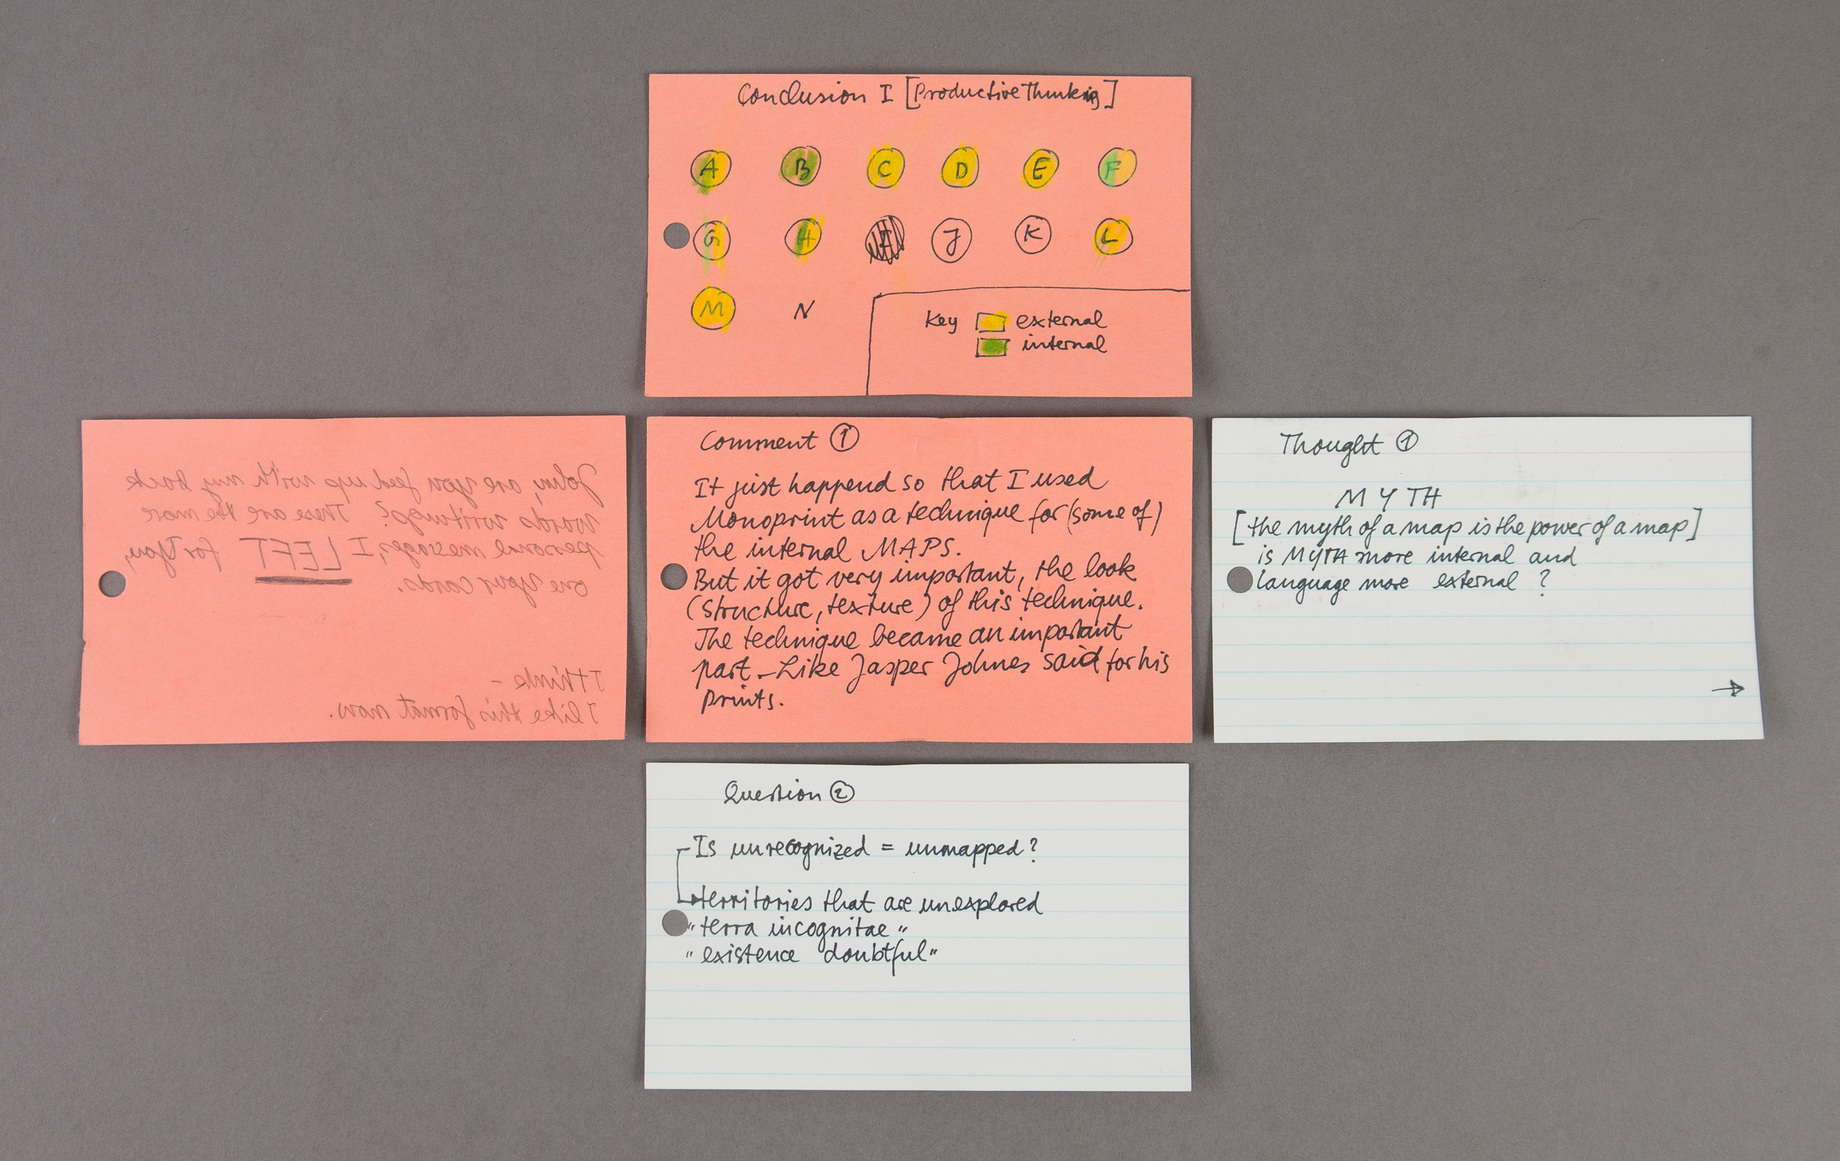 Conclusion I [Productive Thinking]
A B C D E F
G H I J K L
M N
Key external
internal
John, are you feed up with my back
wards writings? These are the more
personal messages, I LEFT for you,
one your cards.
I think –
I like this format now.
Comment ①
It just happend so that I used
Monoprint as a technique for (some of)
the internal MAPS.
But it got very important, the look
(structure, texture) of this technique.
The technique became an important
part – Like Jasper Johnes said for his
prints.
Thought ①
MYTH
[the myth of a map is the power of a map]
is MYTH more internal and
language more external ?
→
Question ②
Is unrecognized = unmapped?
territories that are unexplored
"terra incognitae"
"existence doubtful"